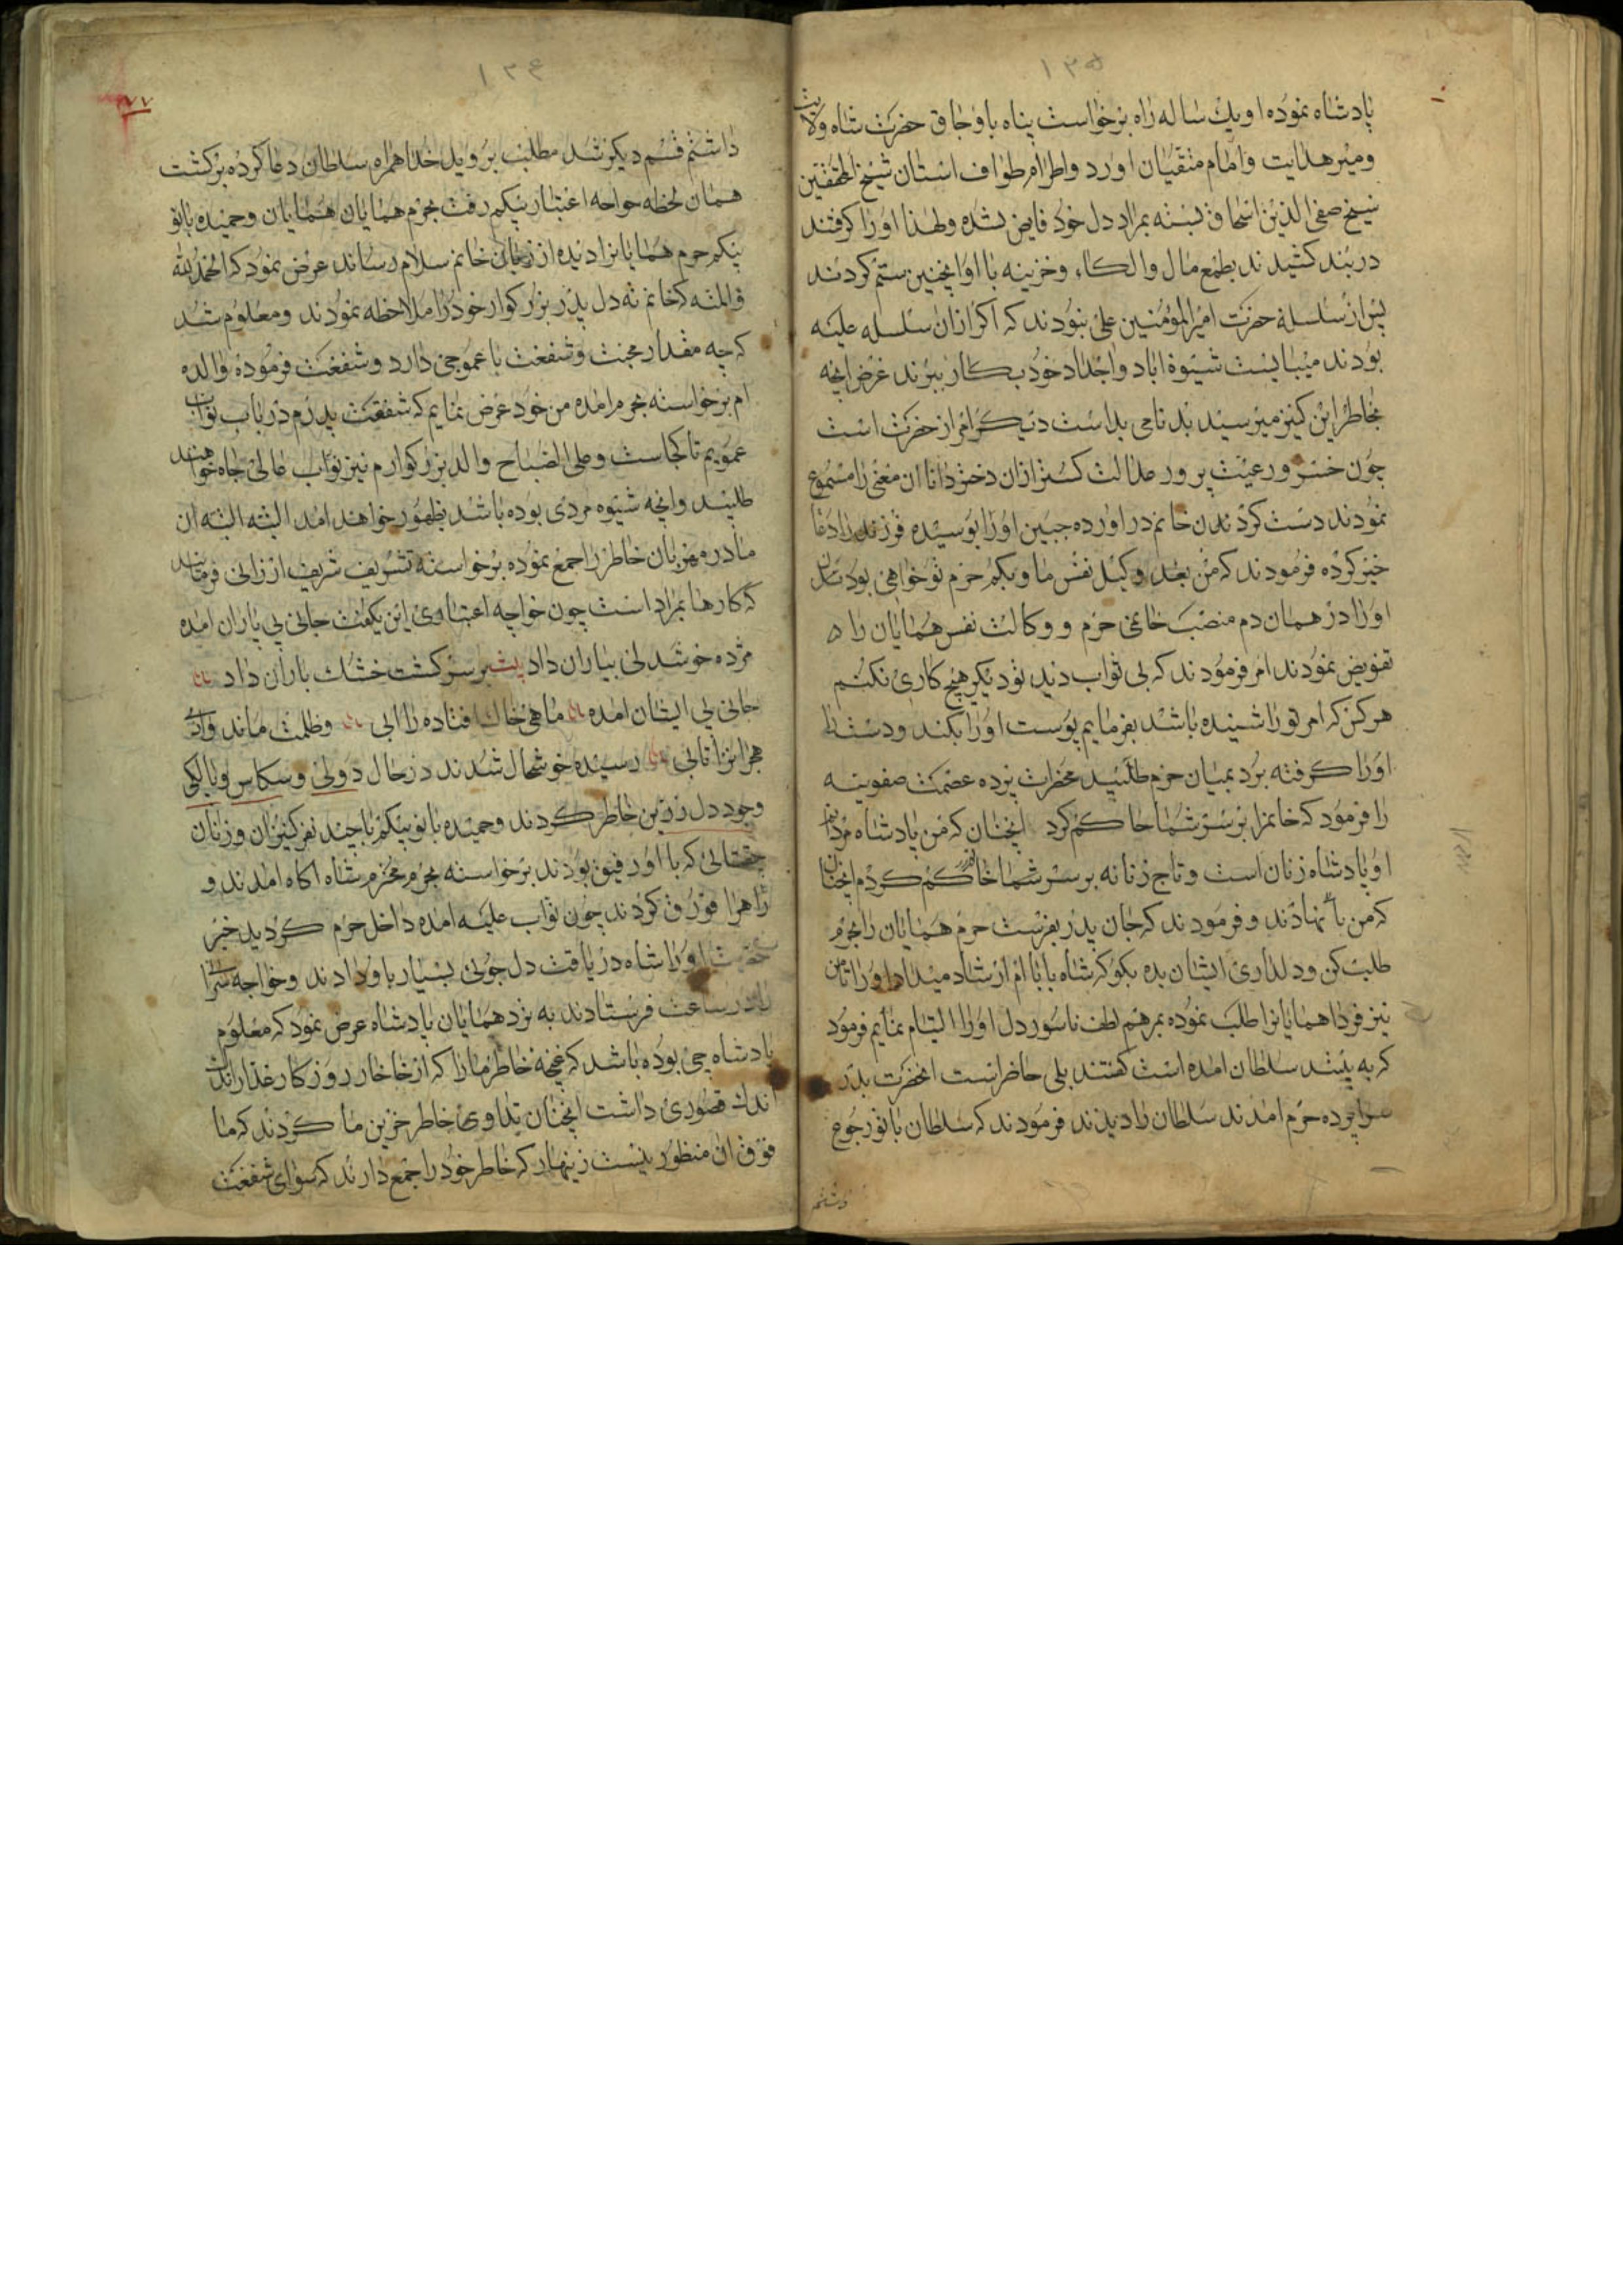 ۱۳۵
پادشاه نموده او یك ساله راه برخواست پناه باوجاق حضرت شاه ولایت
ومیر هدایت وامام متقیان اورد واطرام طواف استان شیخ المحققین
شیخ صفی الدین اسحاق بسته بمراد دل خود فایض نشده ولهذا اورا کرفتند
در بند کشیدند بطمع مال والکاء وخزینه با او اینچنین ستم کردند
پس از سلسلهٔ حضرت امیر المؤمنین علی نبودند که اکر ازان سلسله علیه
بودند میبایست شیوهٔ اباد واجداد خود بکار ببرند غرض انچه
بخاطر این کنیز میرسید بدنامی بداست دیکر امر از حضرت است
چون خسرو رعیت پرور عدالت کستر ازان دختر دانا ان معنی را مسموع
نمودند دست کردند خانم در اورده جبین اورا بوسیده فرزند را دعا
خیر کرده فرمودند که من بعد وکیل نفس ما وبیکم حرم تو خواهی بود
اورا در همان دم منصب خانمی حرم و وکالت نفس همایان را
تفویض نمودند امر فرمودند که بی ثواب دید تو دیکر هیچ کاری نکنیم
هرکس که امر تو را شنیده باشد بفرمایم پوست اورا بکنند ودست
اورا کرفته برد بمیان حرم طلبید مخدرات پرده عصمت صفویه
را فرمود که خانمرا بر سر شما حاکم کرد اینچنان که من پادشاه مردانم
او پادشاه زنان است وتاج زنانه بر سر شما حاکم کردم اینچنان
که من با نهادند وفرمودند که جان پدر بفرست حرم همایان را بحرم
طلب کن ودلداری ایشان بده بکو که شاه بابا ام ارشاد میداد اورا تا من
نیز فردا همایانرا طلب نموده بمرهم لطف ناسور دل اورا التیام نمایم فرمود
که به بینند سلطان امده است کفتند بلی حاضر است انحضرت بدر
سراپرده حرم امدند سلطان را دیدند فرمودند که سلطان با تو رجوع
داشتم
۱۳۶
۷۷
داشتم قسم دیکر شد مطلب بروید خدا همراه سلطان دعا کرده برکشت
همان لحظه خواجه اعتبار بیکم رفت بحرم همایان همایان وحمیده بانو
بیکم حرم همایانرا دیده از زبان خانم سلام رساند عرض نمود که الحمد لله
والمنه که خانم ته دل پدر بزرکوار خود را ملاحظه نمودند ومعلوم شد
که چه مقدار محبت وشفقت با عموجی دارد وشفقت فرموده والده
ام برخواسته بحرم امده من خود عرض نمایم که شفقت پدرم در باب نواب
عمویم تا کجاست وعلی الصباح والد بزرکوارم نیز نواب عالی جاه خواهند
طلبید وانچه شیوه مردی بوده باشد بظهور خواهد امد البته البته ان
مادر مهربان خاطر را جمع نموده برخواسته تشریف شریف ارزانی فرمایند
که کارها بمراد است چون خواجه اعتبار این بکفت جانی بی یاران امده
مژده خوشدلی بیاران داد بیت بر سر کشت خشك باران داد
جانی بی ایشان امده ماهی خاك افتاده را ابی وظلمت ماند وادی
هجرانرا افتابی رسیده خوشحال شدند در حال دولی وسکاس وپالکی
وجود دل زرین خاطر کردند وحمیده بانو بیکم با چند نفر کنیزان وزنان
چغتائی که با او رفیق بودند برخواسته بحرم محترم شاه اکاه امدند و
راهرا قورق کردند چون نواب علیه امده داخل حرم کردید خبر
حضرت اورا شاه دریافت دل جوئی بسیار باو دادند وخواجه سرا
را در ساعت فرستادند به نزد همایان پادشاه عرض نمود که معلوم
پادشاه جی بوده باشد که غنچه خاطر ما را که از خاخار روزکار غدار
اندك قصوری داشت اینچنان تداوی خاطر حزین ما کردند که ما
فوق ان منظور نیست زینهار که خاطر خود را جمع دارند که سوای شفقت